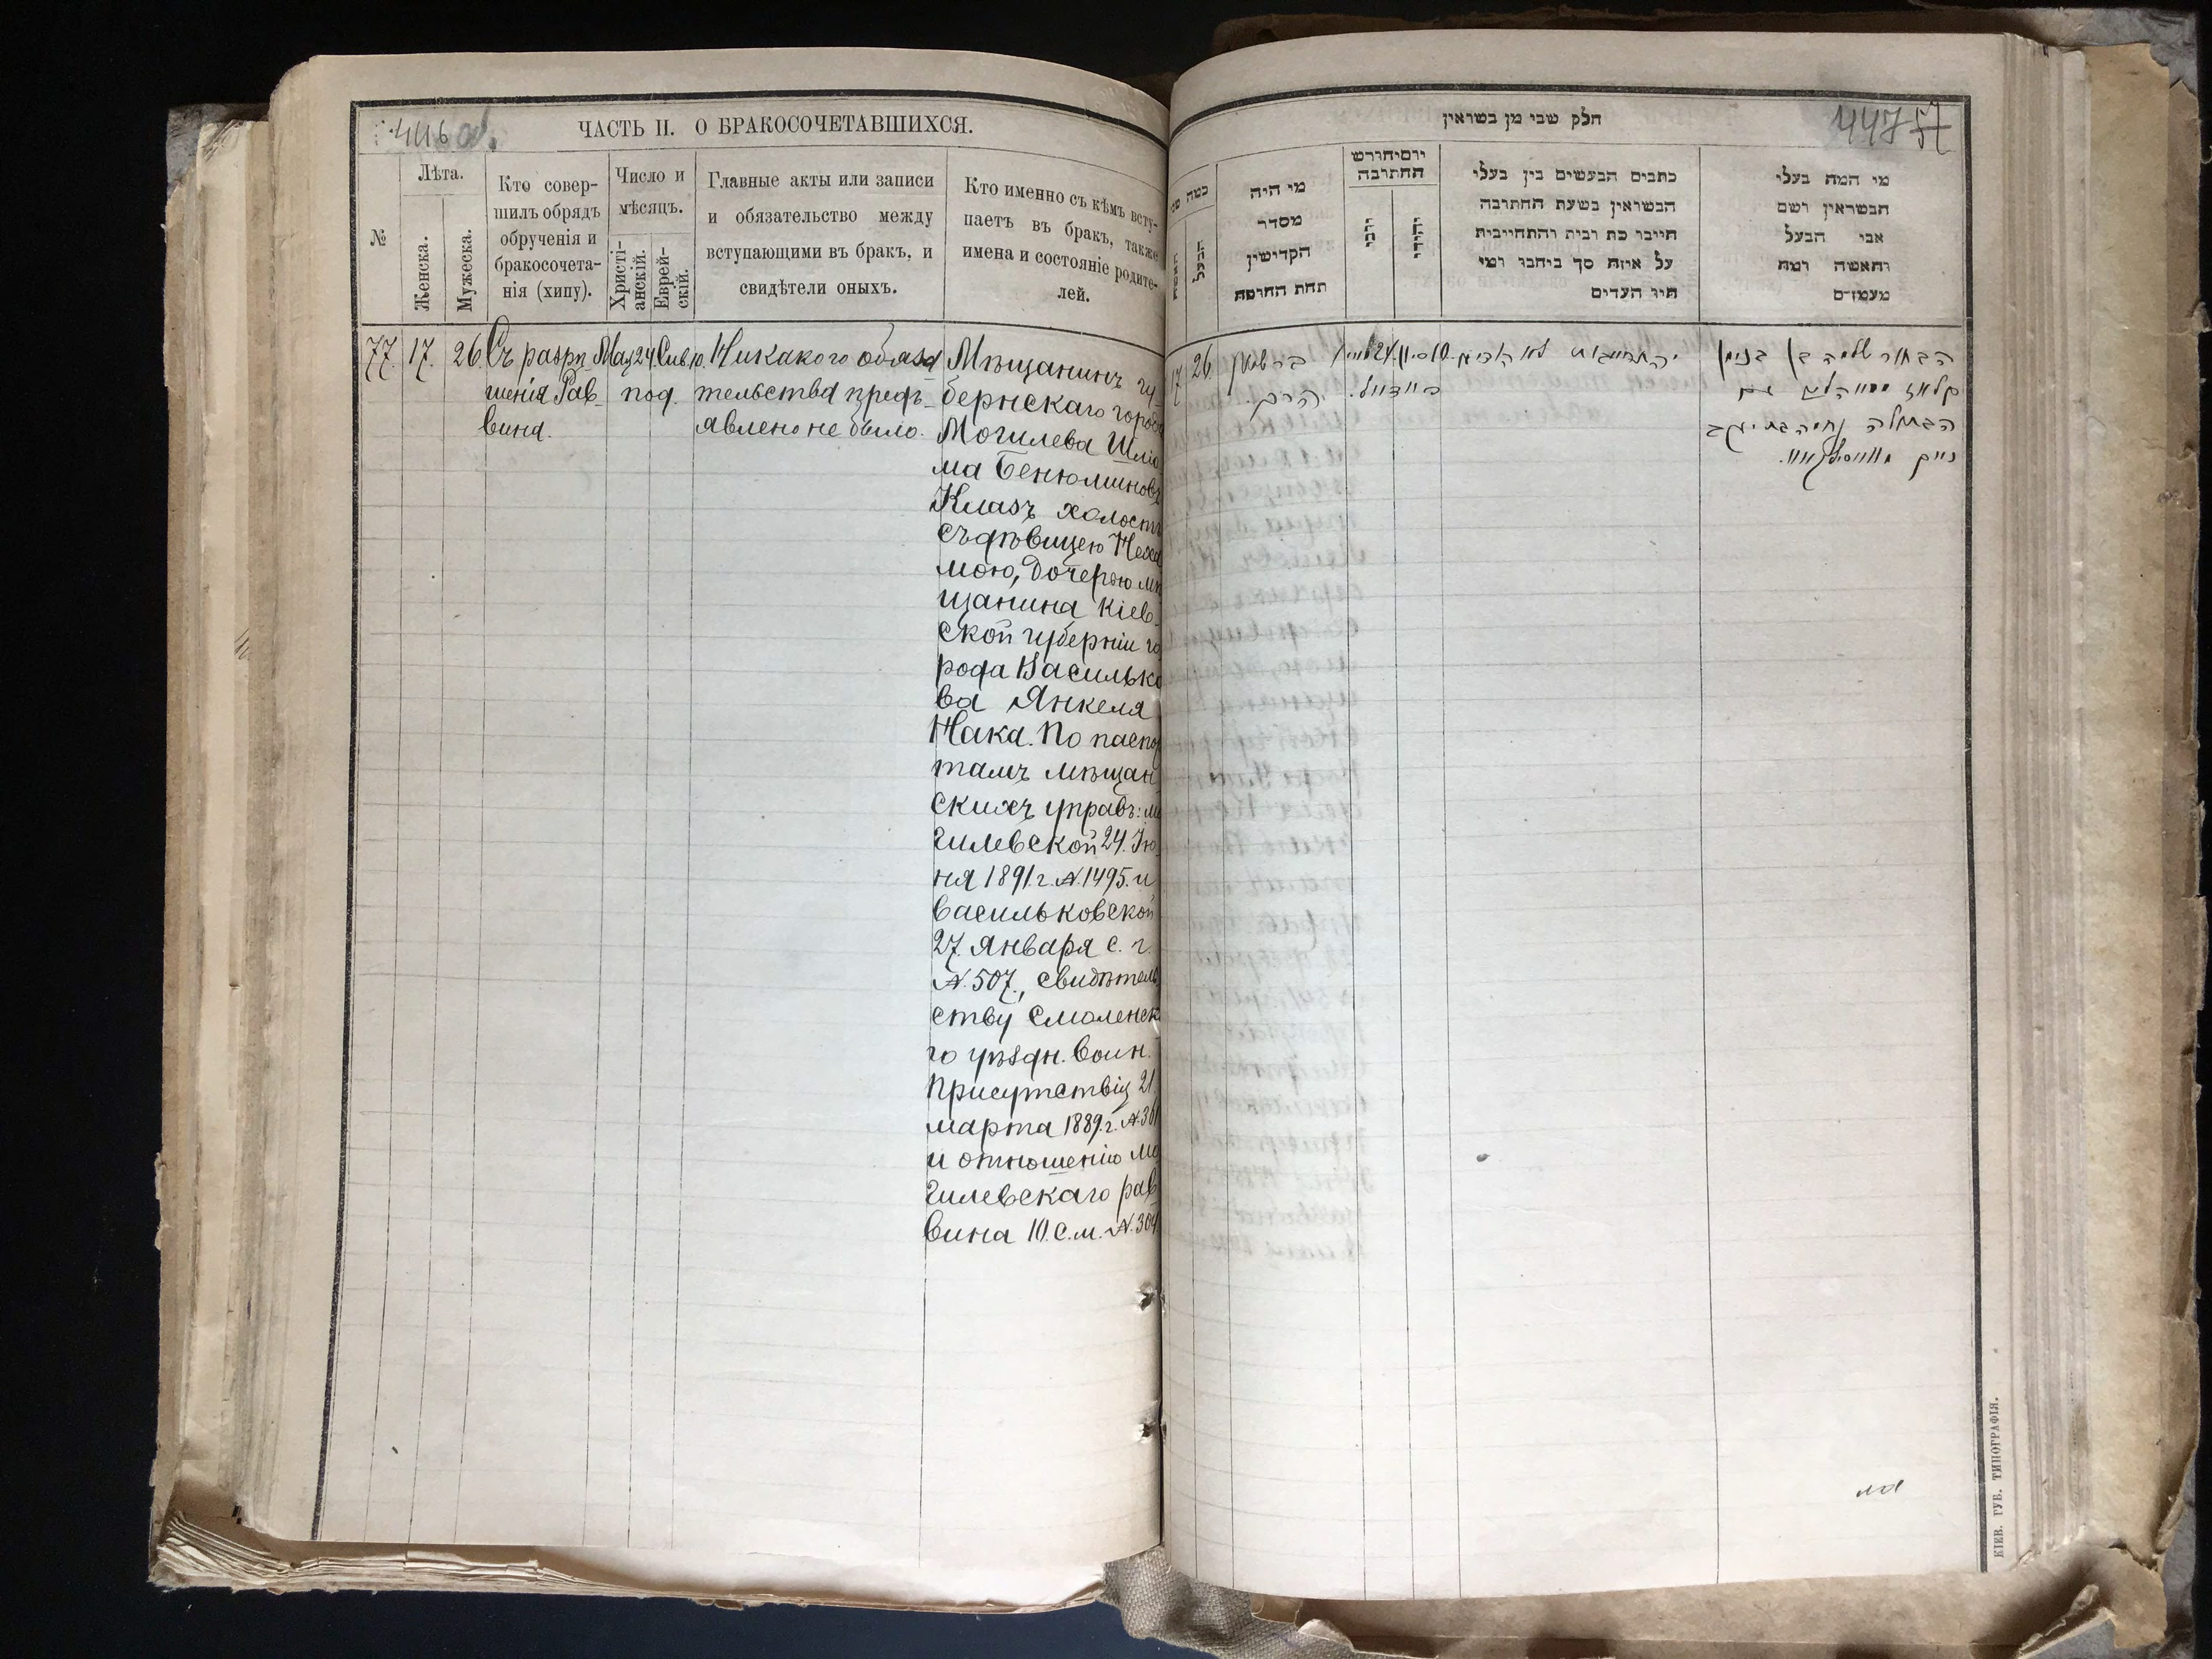 446 об.
ЧАСТЬ II. О БРАКОСОЧЕТАВШИХСЯ.
№
Лѣта.
Женска.
Мужеска.
Кто совер-
шилъ обрядъ
обрученія и
бракосочета-
нія (хипу).
Число и
мѣсяцъ.
Христі-
анскій.
Еврей-
скій.
Главные акты или записи
и обязательство между
вступающими въ бракъ, и
свидѣтели оныхъ.
Кто именно съ кѣмъ всту-
паетъ въ бракъ, также
имена и состояніе родите-
лей.
77. 17. 26.
Съ разрѣ-
шенія Рав-
вина.
Мая 24 Сив. 10.
под.
Никакого обяза
тельства предъ-
явлено не было.
Мѣщанинъ гу-
бернскаго города
Могилева Шлio
ма Бенюминовъ
Клазъ холостъ
съ дѣвицею Неха
мою, дочерью мѣ
щанина Кіев-
ской губерніи го
рода Василько
ва Янкеля
Нака. По паспор
тамъ мѣщан
скихъ управъ: мо
гилевской 24. Iю-
ня 1891. г. №. 1495. и
васильковской
27. января с. г.
№. 507., свидѣтель
ству Смоленска
го уѣздн. воин.
присутствія 21.
марта 1889. г. №. 361
и отношенію мо
гилевскаго рав
вина 10. с. м. №. 304
447 57
חלק שני מן בשואין
כמה שני
הבעל
מי היה
מסדר
הקדישין
תחת החופה
יום וחודש
החתונה
יוני
יהודי
כתבים הנעשים בין בעלי
הנשואין בשעת החתונה
חיובי כת ובית והתחייבות
על איזה סך ביחבו ומי
היו העדים
מי המה בעלי
הנשואין ושם
אבי הבעל
והאשה ומה
מעמדם
17 26.
24
הבחור שלמה בן בנימן
קלאז
הבתולה נחמה בת יעקב
КІЕВ. ГУБ. ТИПОГРАФІЯ.